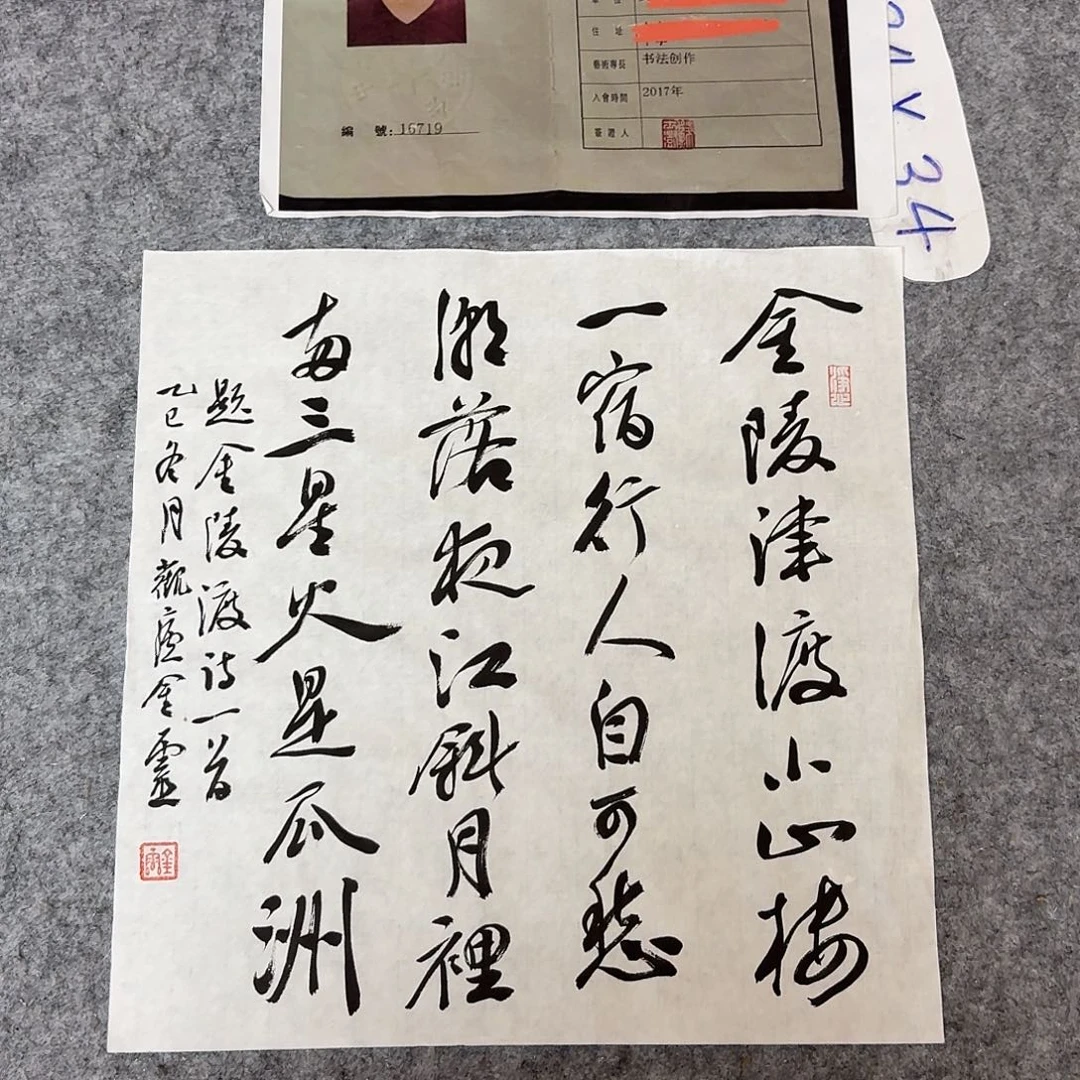 住 址
藝術專長 书法创作
入會時間 2017年
簽證人
編 號: 16719
34
金陵津渡小山楼
一宿行人自可愁
潮落夜江斜月裡
两三星火是瓜洲
题金陵渡诗一首
乙巳冬月觀廬金靈